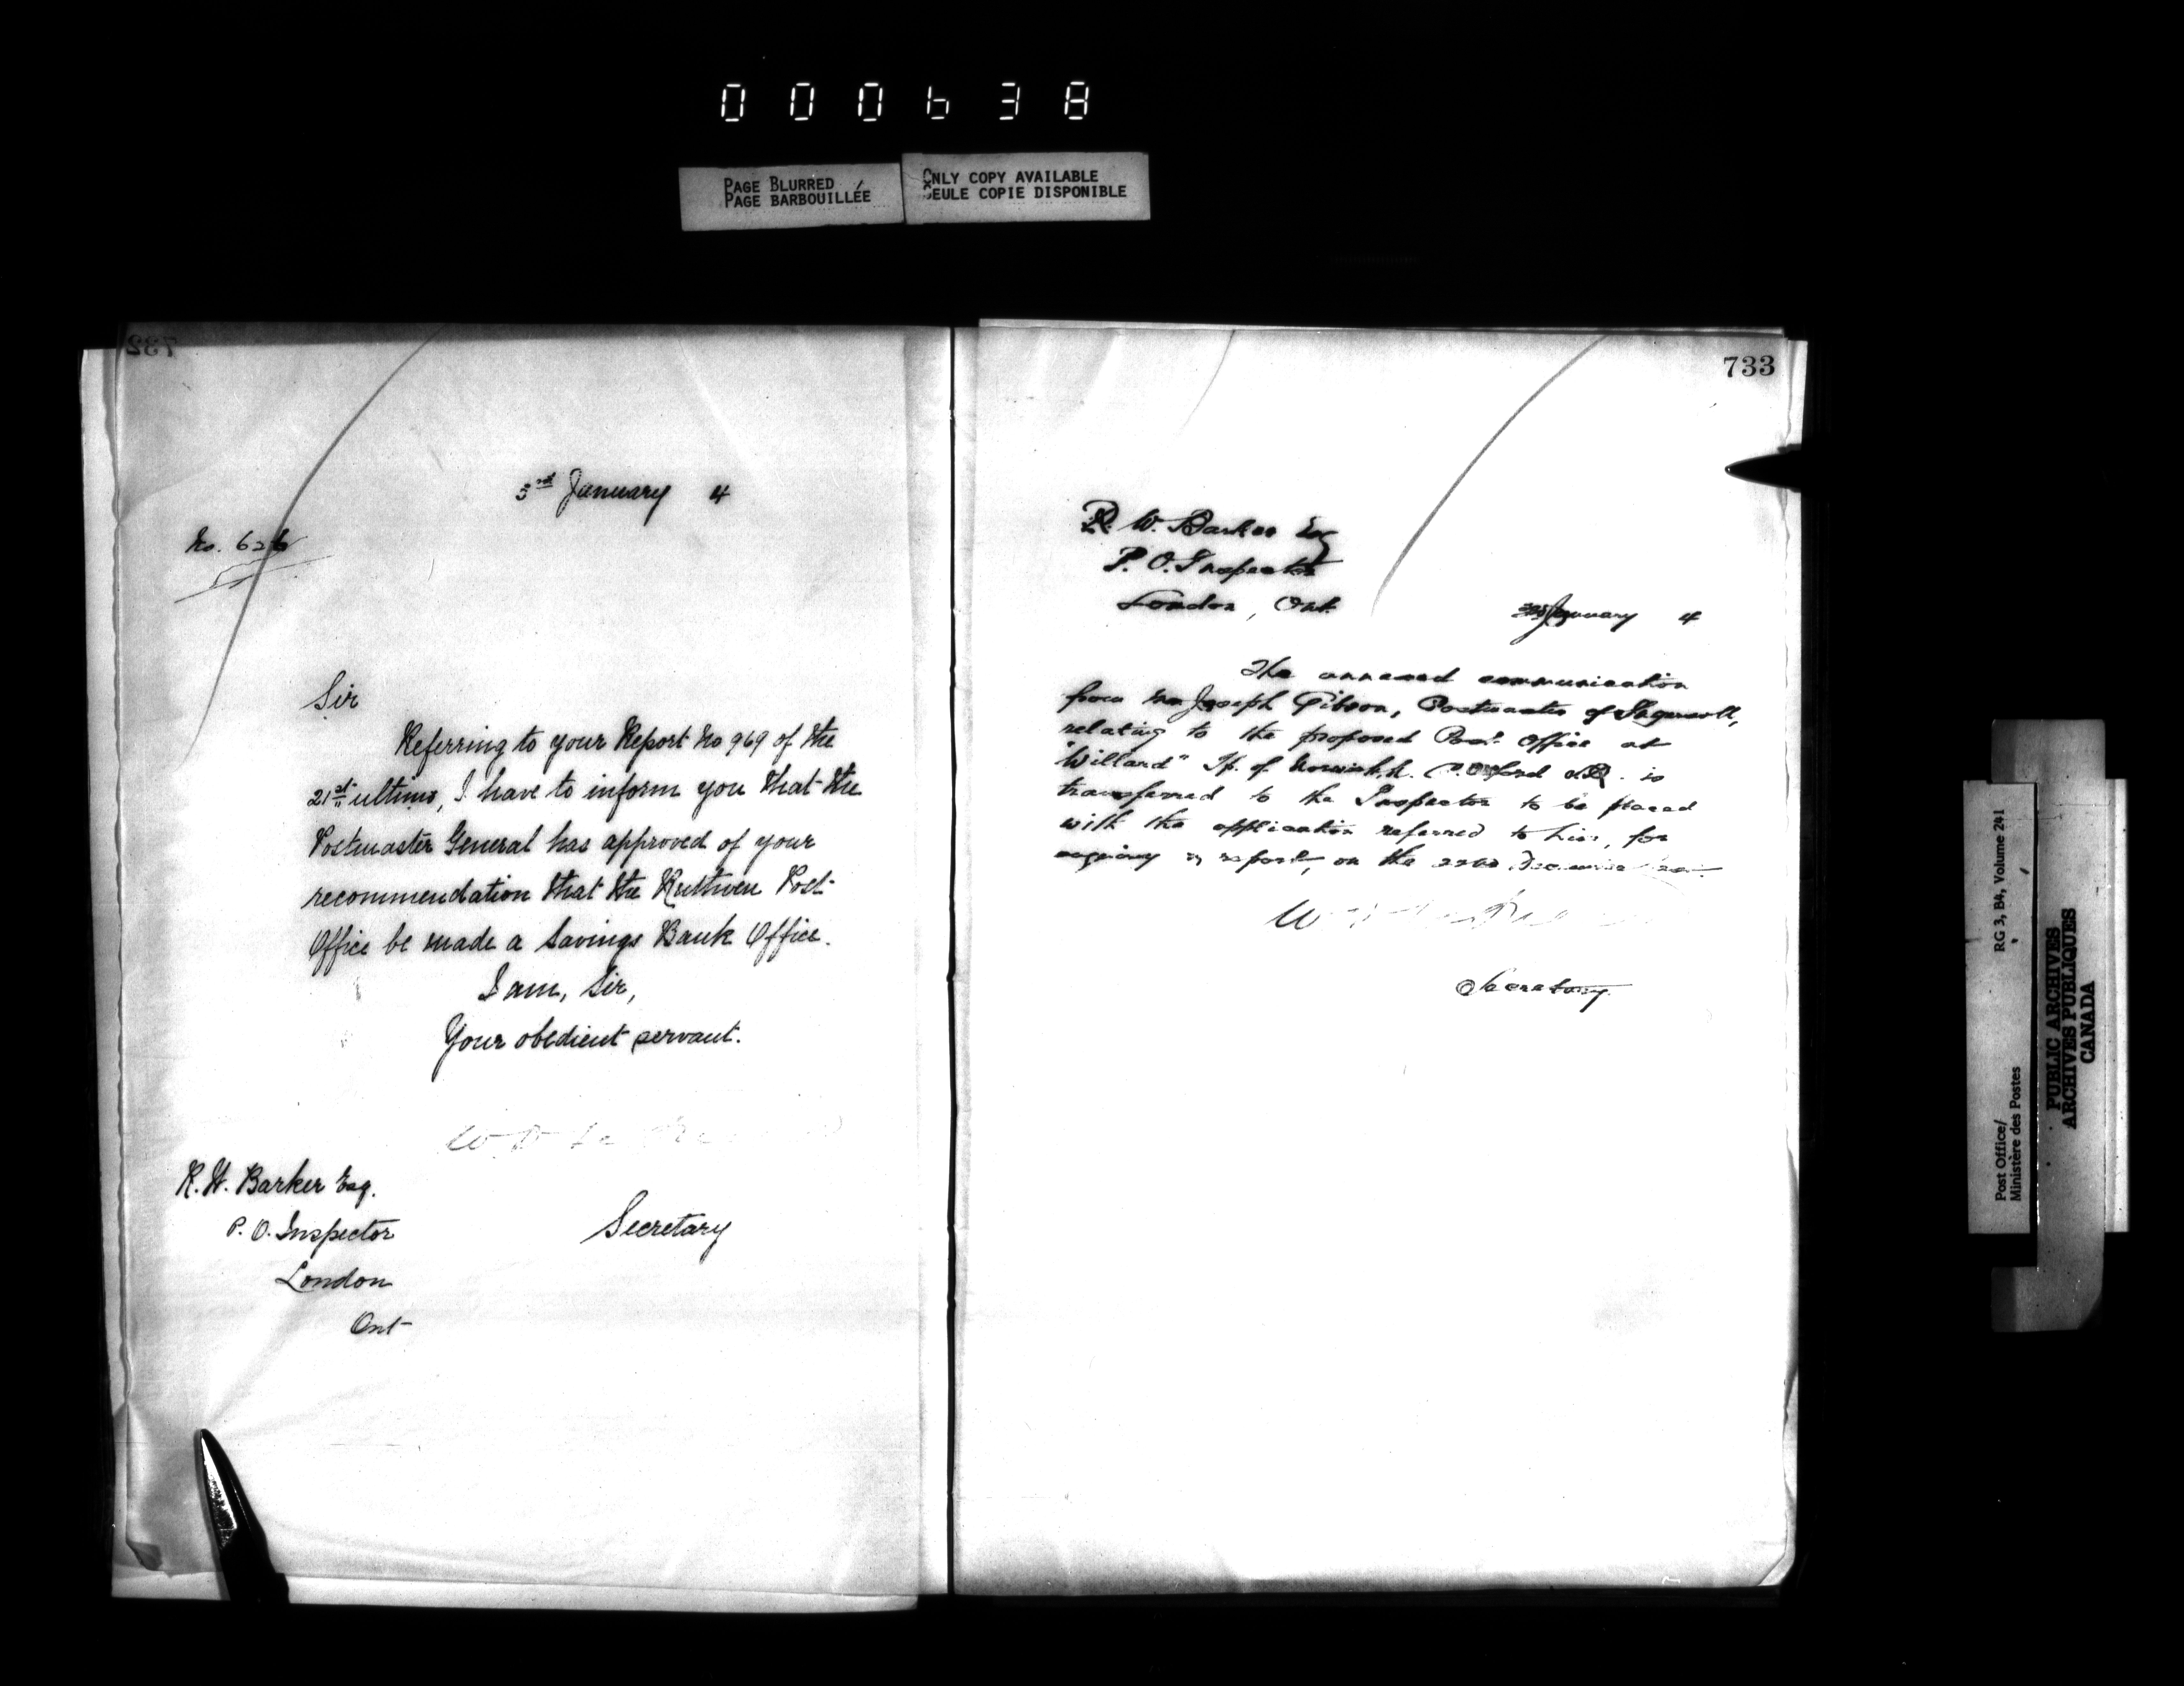 000638
PAGE BLURRED
PAGE BARBOUILLÉE
ONLY COPY AVAILABLE
SEULE COPIE DISPONIBLE
732
3rd January 4
No. 626
Sir
Referring to your Report No 969 of the
21st ultimo, I have to inform you that the
Postmaster General has approved of your
recommendation that the Ruthven Post
Office be made a Savings Bank Office.
I am, Sir,
Your obedient servant.
W. D. Le
R. W. Barker Esq.
P. O. Inspector
London
Ont
Secretary
733
R. W. Barker Esq
P. O. Inspector
London, Ont.
January 4
The annexed communication
from Mr Joseph Gibson, Postmaster of Ingersoll,
relating to the proposed Post Office at
"Willard" Tp. of Norwich N. Oxford is
transferred to the Inspector to be placed
with the application referred to him, for
enquiry & report, on the 22nd December
W
Secretary
Post Office/
Ministère des Postes
RG 3, B4, Volume 241
PUBLIC ARCHIVES
ARCHIVES PUBLIQUES
CANADA